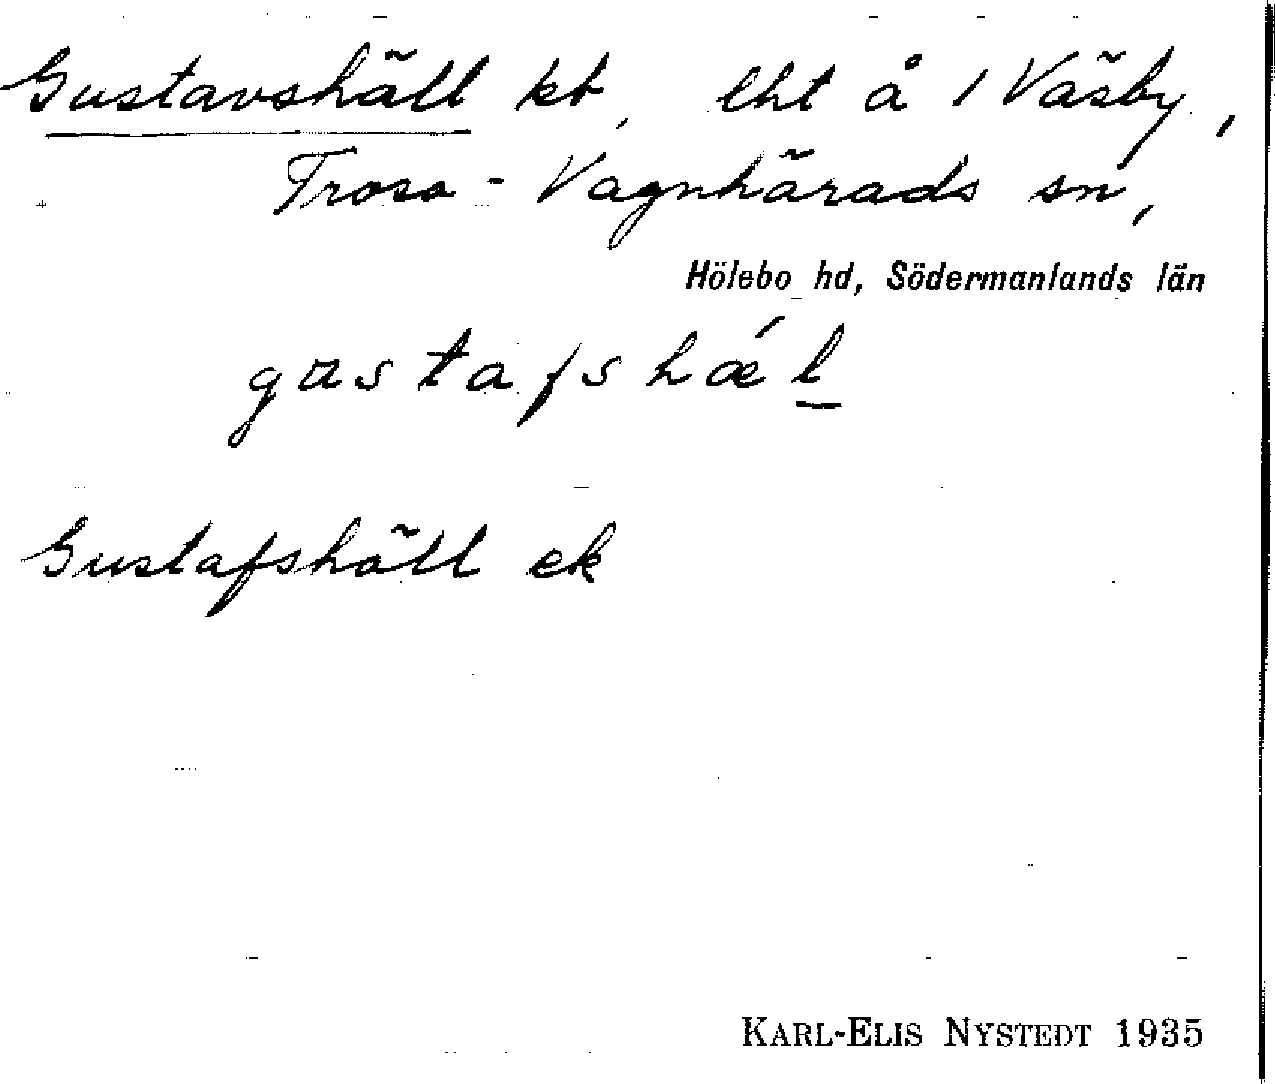 Gustavshäll kt, lht å 1 Väsby,
Trosa-Vagnhärads sn,
Hölebo hd, Södermanlands län
gustafshǽl
Gustafshäll ek
KARL-ELIS NYSTEDT 1935